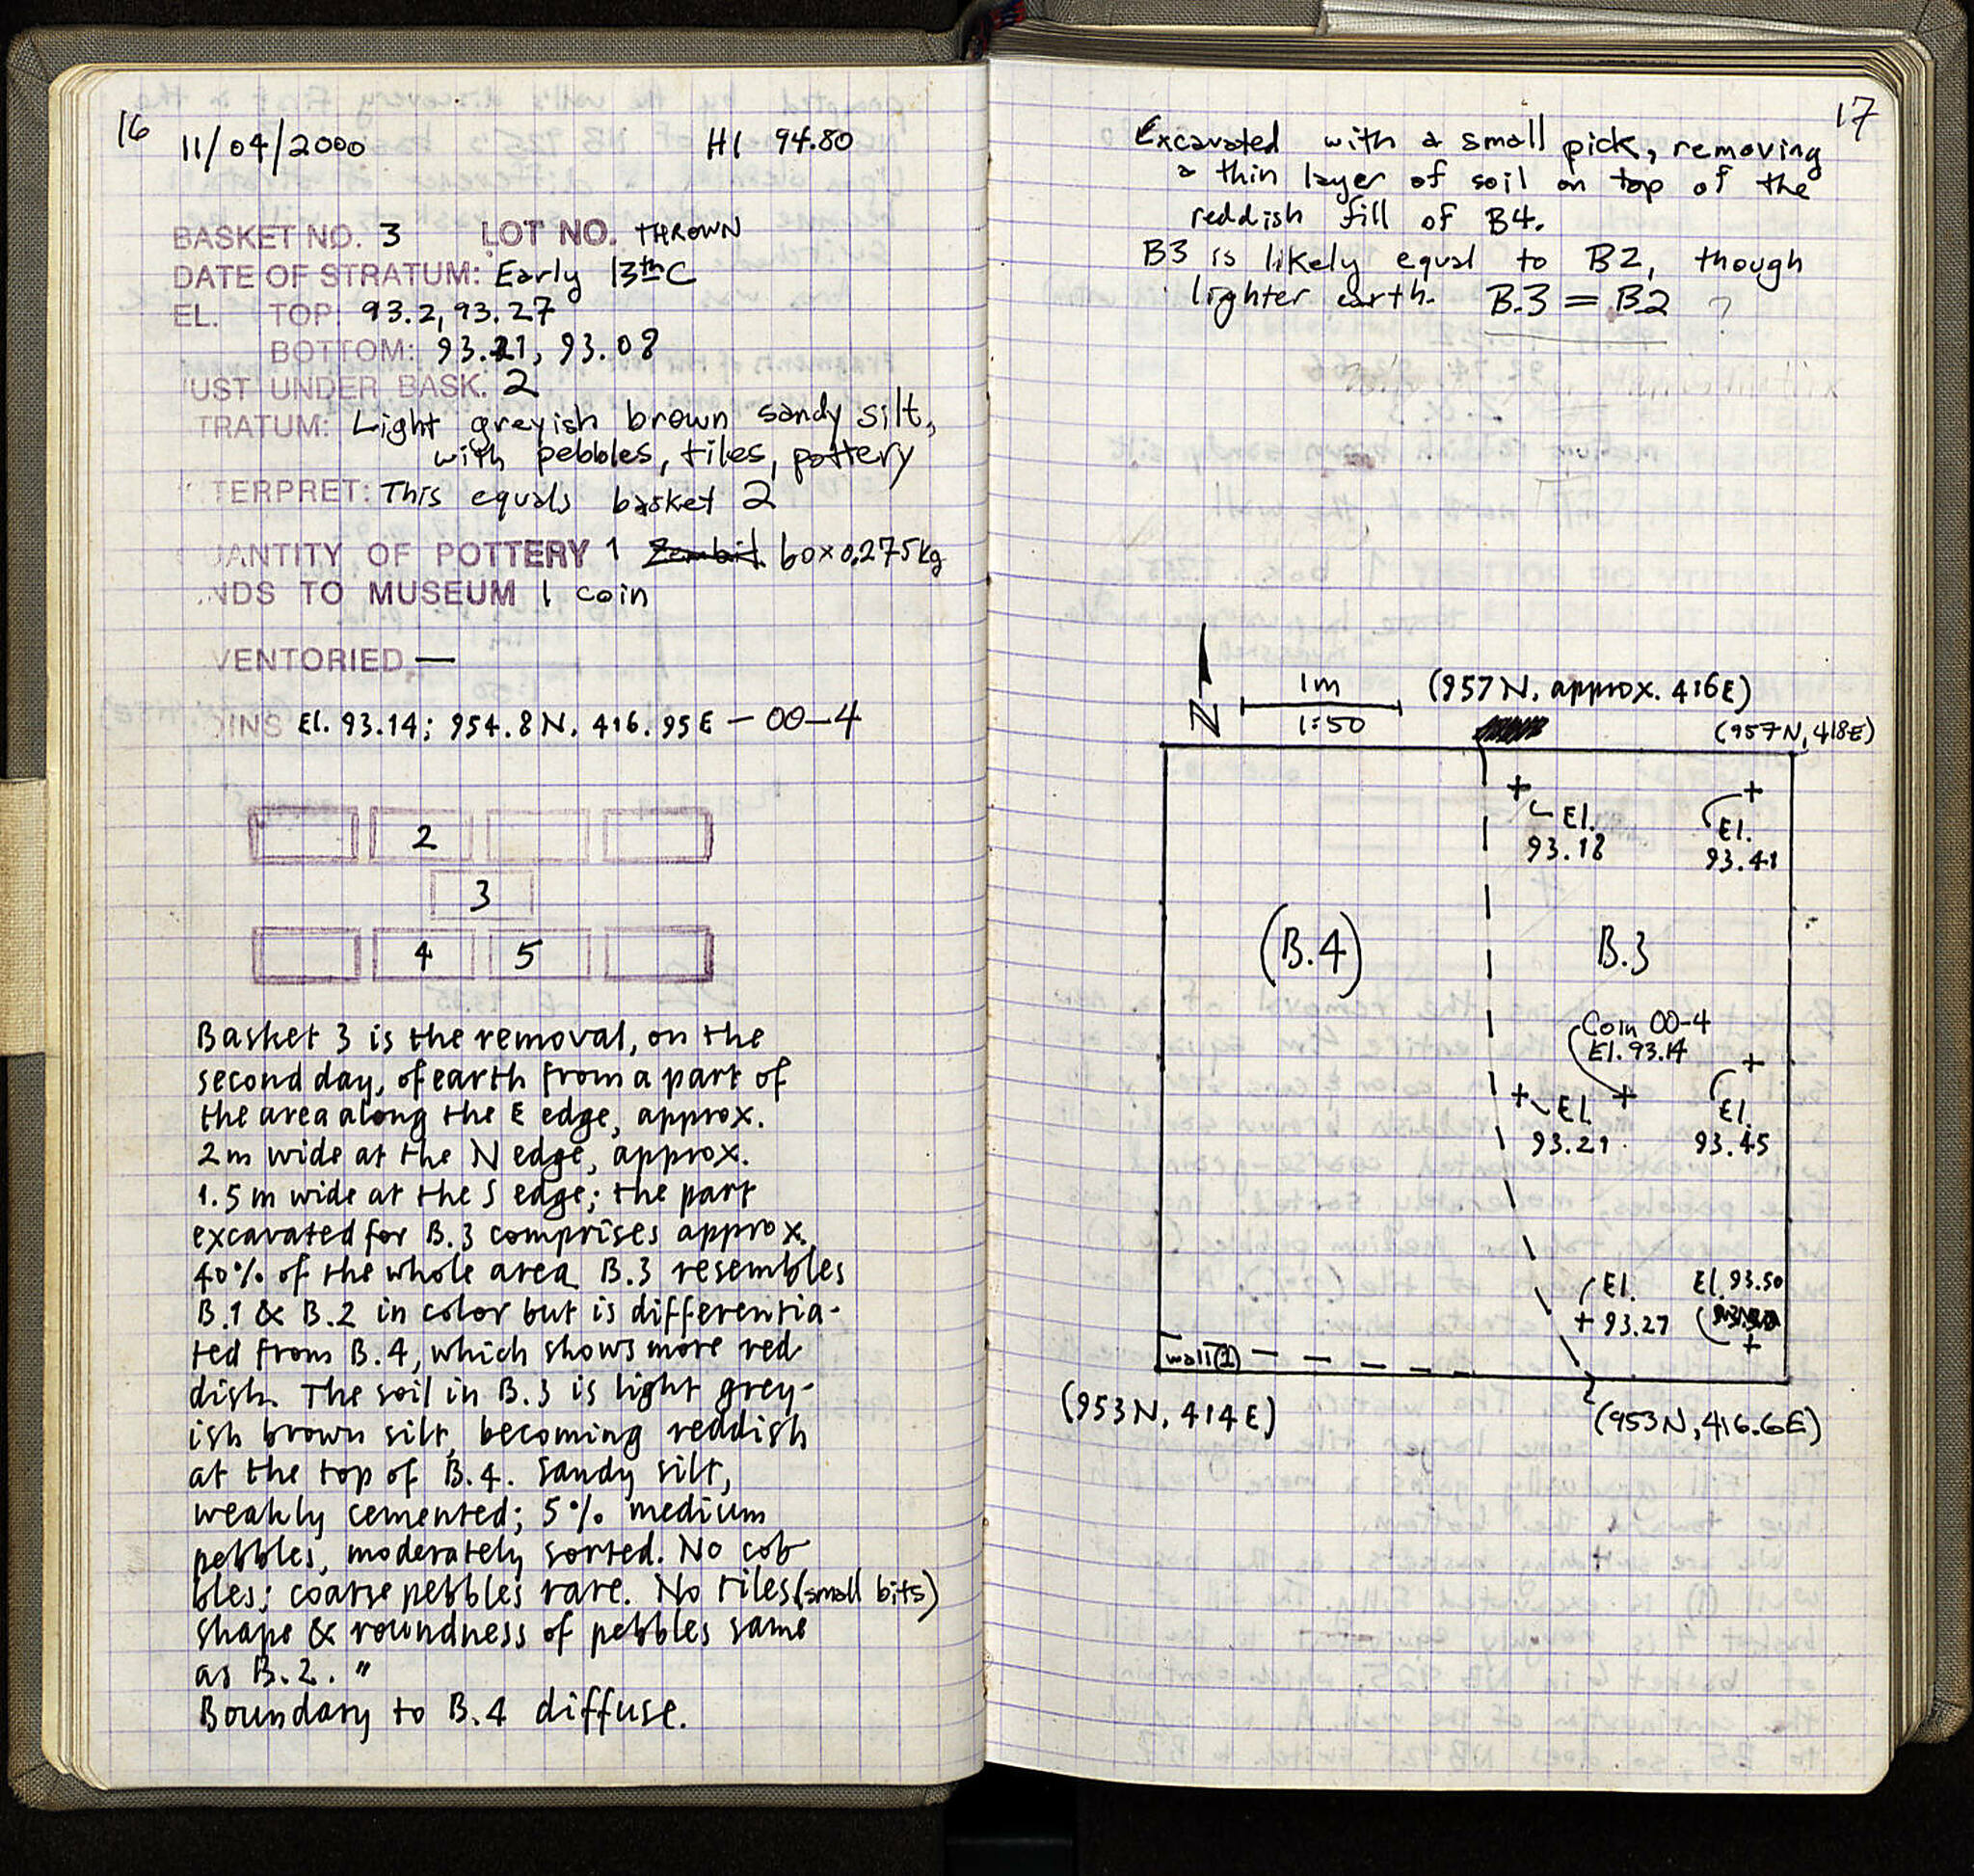 16
11/04/2000 HI 94.80
BASKET NO. 3 LOT NO. THROWN
DATE OF STRATUM: Early 13th C
EL. TOP: 93.2, 93.27
BOTTOM: 93.21, 93.08
UST UNDER BASK. 2
TRATUM: Light greyish brown sandy silt,
with pebbles, tiles, pottery
TERPRET: This equals basket 2
UANTITY OF POTTERY 1 box 0.275kg
NDS TO MUSEUM 1 coin
VENTORIED —
INS El. 93.14; 954.8N. 416.95E - 00-4
2
3
4 5
Basket 3 is the removal, on the
second day, of earth from a part of
the area along the E edge, approx.
2m wide at the N edge, approx.
1.5m wide at the S edge; the part
excavated for B.3 comprises approx.
40% of the whole area. B.3 resembles
B.1 & B.2 in color but is differentia-
ted from B.4, which shows more red-
dish. The soil in B.3 is light grey-
ish brown silt, becoming reddish
at the top of B.4. Sandy silt,
weakly cemented; 5% medium
pebbles, moderately sorted. No cob-
bles; coarse pebbles rare. No tiles (small bits)
shape & roundness of pebbles same
as B.2. "
Boundary to B.4 diffuse.
17
Excavated with a small pick, removing
a thin layer of soil on top of the
reddish fill of B4.
B3 is likely equal to B2, though
lighter earth. B.3 = B.2 ?
N
1m
1:50
(957N, approx. 416E)
(957N, 418E)
El.
93.18
El.
93.41
(B.4)
B.3
Coin 00-4
El. 93.14
El.
93.21
El.
93.45
El.
93.27
El. 93.50
wall (1)
(953N, 414E)
(953N, 416.6E)